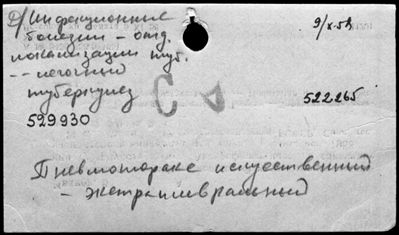 2/ Инфекционные
болезни – отд.
локализации туб.
-- легочный
туберкулез
529930
9/X-54
522265
Пневмоторакс искусственный
– экстраплевральный